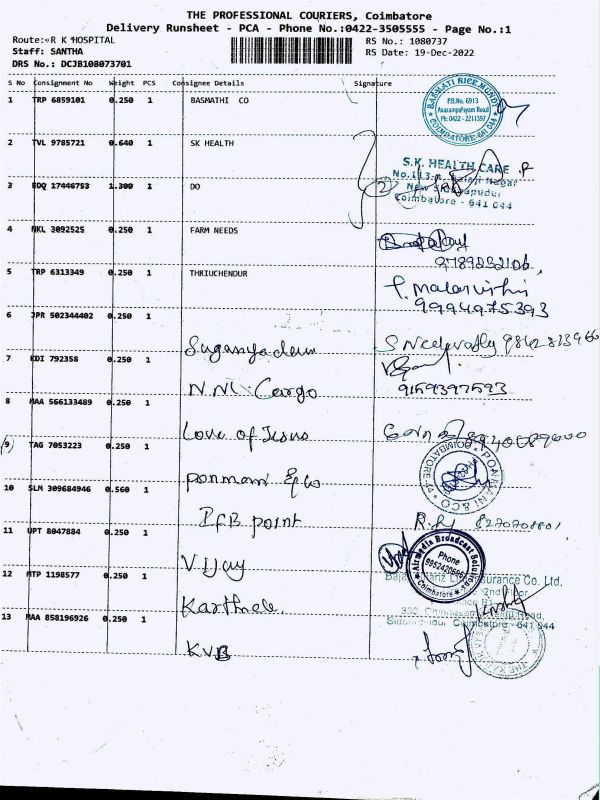 THE PROFESSIONAL COURIERS, Coimbatore
Delivery Runsheet - PCA - Phone No.:0422-3505555 - Page No.:1
Route: R K HOSPITAL
RS No.: 1080737
Staff: SANTHA
RS Date: 19-Dec-2022
DRS No.: DCJB108073701
S No Consignment No Weight PCS Consignee Details Signature
1 TRP 6859101 0.250 1 BASMATHI CO
BASMATI RICE MUNDY
P.B.No. 6913
Avarampalayam Road
Ph: 0422 - 2211397
COIMBATORE-641 044
2 TVL 9785721 0.640 1 SK HEALTH
S.K. HEALTH CARE
No.113
Nagar
New Siddhapudur
Coimbatore - 641 044
3 EDQ 17446753 1.300 1 DO
2
4 NKL 3092525 0.250 1 FARM NEEDS
9789232106
5 TRP 6313349 0.250 1 THRIUCHENDUR
P. Malarvizhi
9994975393
6 JPR 502344402 0.250 1
Suganya devi
7 KDI 792358 0.250 1
N.N.L. Cargo
9159397593
8 MAA 566133489 0.250 1
Love of Jesus
9 TAG 7053223 0.250 1
ponmani & co
PONMANI & CO
COIMBATORE
10 SLM 309684946 0.560 1
IFB point
8270708801
11 UPT 8047884 0.250 1
Vijay
Airmedia Broadcast Solution
Phone
Coimbatore
12 MTP 1198577 0.250 1
Karthick.
Bajaj Allianz Life Insurance Co. Ltd.
2nd Floor
Road,
Coimbatore - 641 044
13 MAA 858196926 0.250 1
KVB